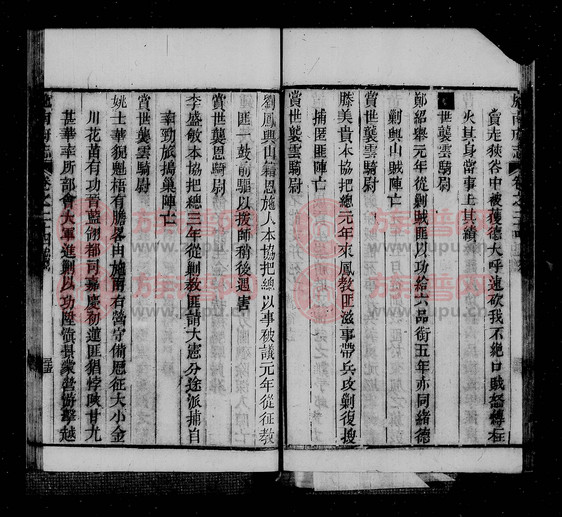 賁走狹谷中被獲德大呼速砍我不絕口賊怒縛在
火其身當事上其績
世襲雲騎尉
鄭紹舉元年從剿賊匪以功給六品銜五年亦同緒德
剿興山賊陣亡
賞世襲雲騎尉
滕美貴本協把總元年來鳳教匪滋事帶兵攻剿復搜
捕匿匪陣亡
賞世襲雲騎尉
劉鳳輿山籍恩施人本協把總以事被議元年從征教
匪一鼓前驅以援師稍後遇害
賞世襲恩騎尉
李盛敏本協把總三年從剿教匪請大憲分途派捕自
率勁旅搗巢陣亡
賞世襲雲騎尉
姚士華貌魁梧有膽畧由施南右營守備歷征大小金
川花苗有功賞藍翎都司嘉慶初蓮匪猖悖陝甘尤
甚華率所部會大軍進剿以功陞游擊越
施南府志
卷之二十四
族譜网
www.zupu.cn